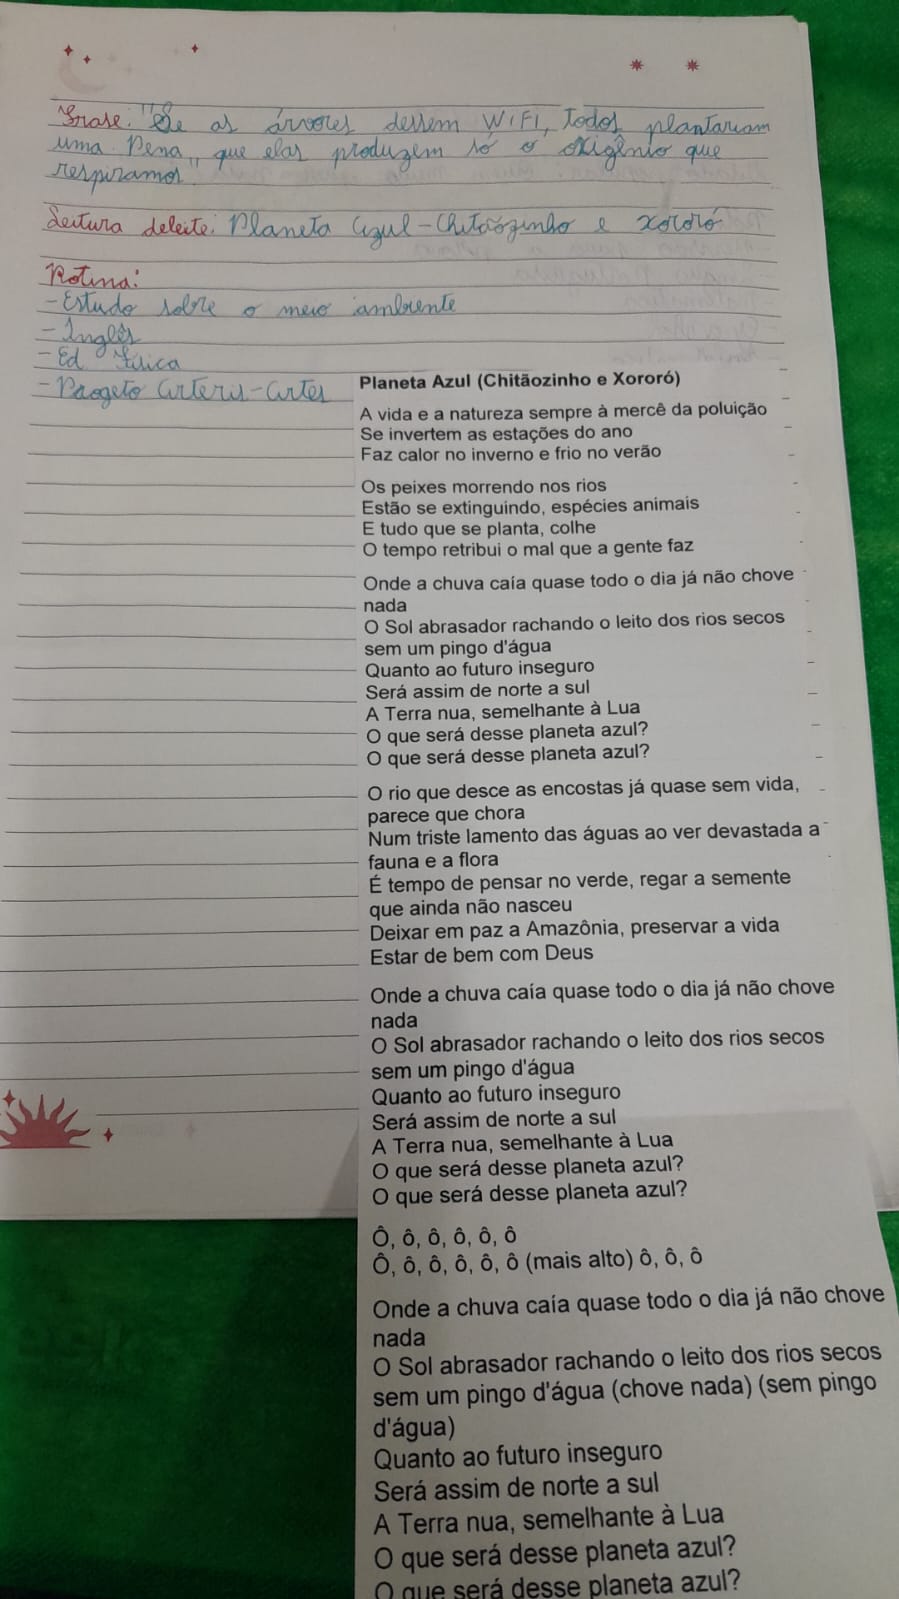 Frase: "Se as árvores dessem WIFI, todos plantariam
uma. Pena, que elas produzem só o oxigênio que
respiramos.
Leitura deleite: Planeta Azul - Chitãozinho e xororó
Rotina:
- Estudo sobre o meio ambiente
- Inglês
- Ed. Física
- Progeto Arteris - Artes
Planeta Azul (Chitãozinho e Xororó)
A vida e a natureza sempre à mercê da poluição
Se invertem as estações do ano
Faz calor no inverno e frio no verão
Os peixes morrendo nos rios
Estão se extinguindo, espécies animais
E tudo que se planta, colhe
O tempo retribui o mal que a gente faz
Onde a chuva caía quase todo o dia já não chove
nada
O Sol abrasador rachando o leito dos rios secos
sem um pingo d'água
Quanto ao futuro inseguro
Será assim de norte a sul
A Terra nua, semelhante à Lua
O que será desse planeta azul?
O que será desse planeta azul?
O rio que desce as encostas já quase sem vida,
parece que chora
Num triste lamento das águas ao ver devastada a
fauna e a flora
É tempo de pensar no verde, regar a semente
que ainda não nasceu
Deixar em paz a Amazônia, preservar a vida
Estar de bem com Deus
Onde a chuva caía quase todo o dia já não chove
nada
O Sol abrasador rachando o leito dos rios secos
sem um pingo d'água
Quanto ao futuro inseguro
Será assim de norte a sul
A Terra nua, semelhante à Lua
O que será desse planeta azul?
O que será desse planeta azul?
Ô, ô, ô, ô, ô, ô
Ô, ô, ô, ô, ô, ô (mais alto) ô, ô, ô
Onde a chuva caía quase todo o dia já não chove
nada
O Sol abrasador rachando o leito dos rios secos
sem um pingo d'água (chove nada) (sem pingo
d'água)
Quanto ao futuro inseguro
Será assim de norte a sul
A Terra nua, semelhante à Lua
O que será desse planeta azul?
O que será desse planeta azul?